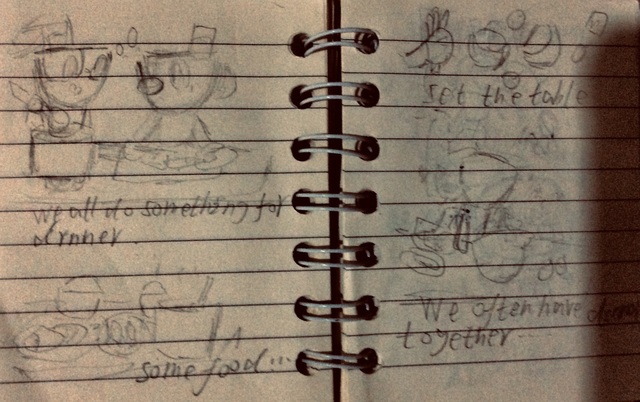 we all do something for
dinner.
some food...
Set the table
We often have dinner
together...